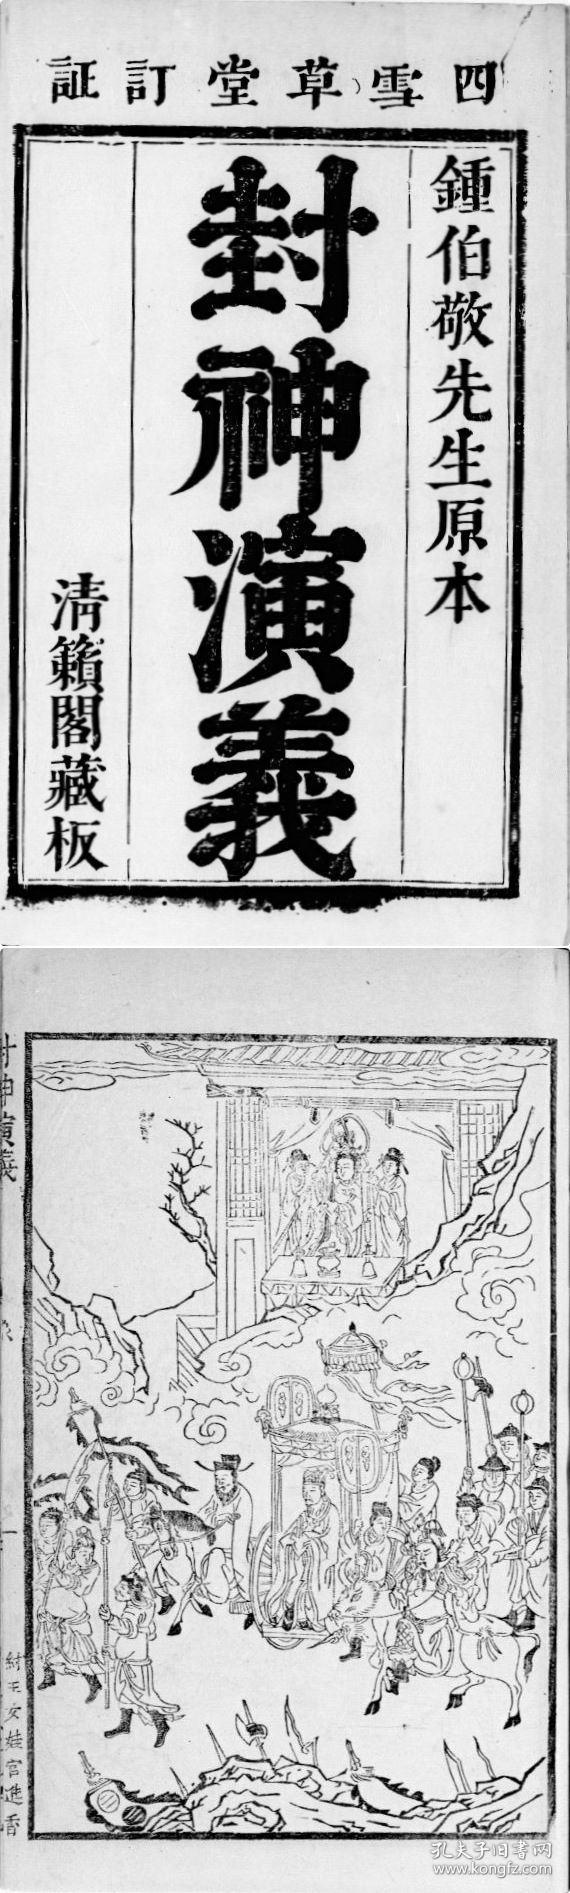 四雪草堂訂証
鍾伯敬先生原本
封神演義
清籟閣藏板
封神演義
紂王女媧宮進香
孔夫子旧书网
www.kongfz.com